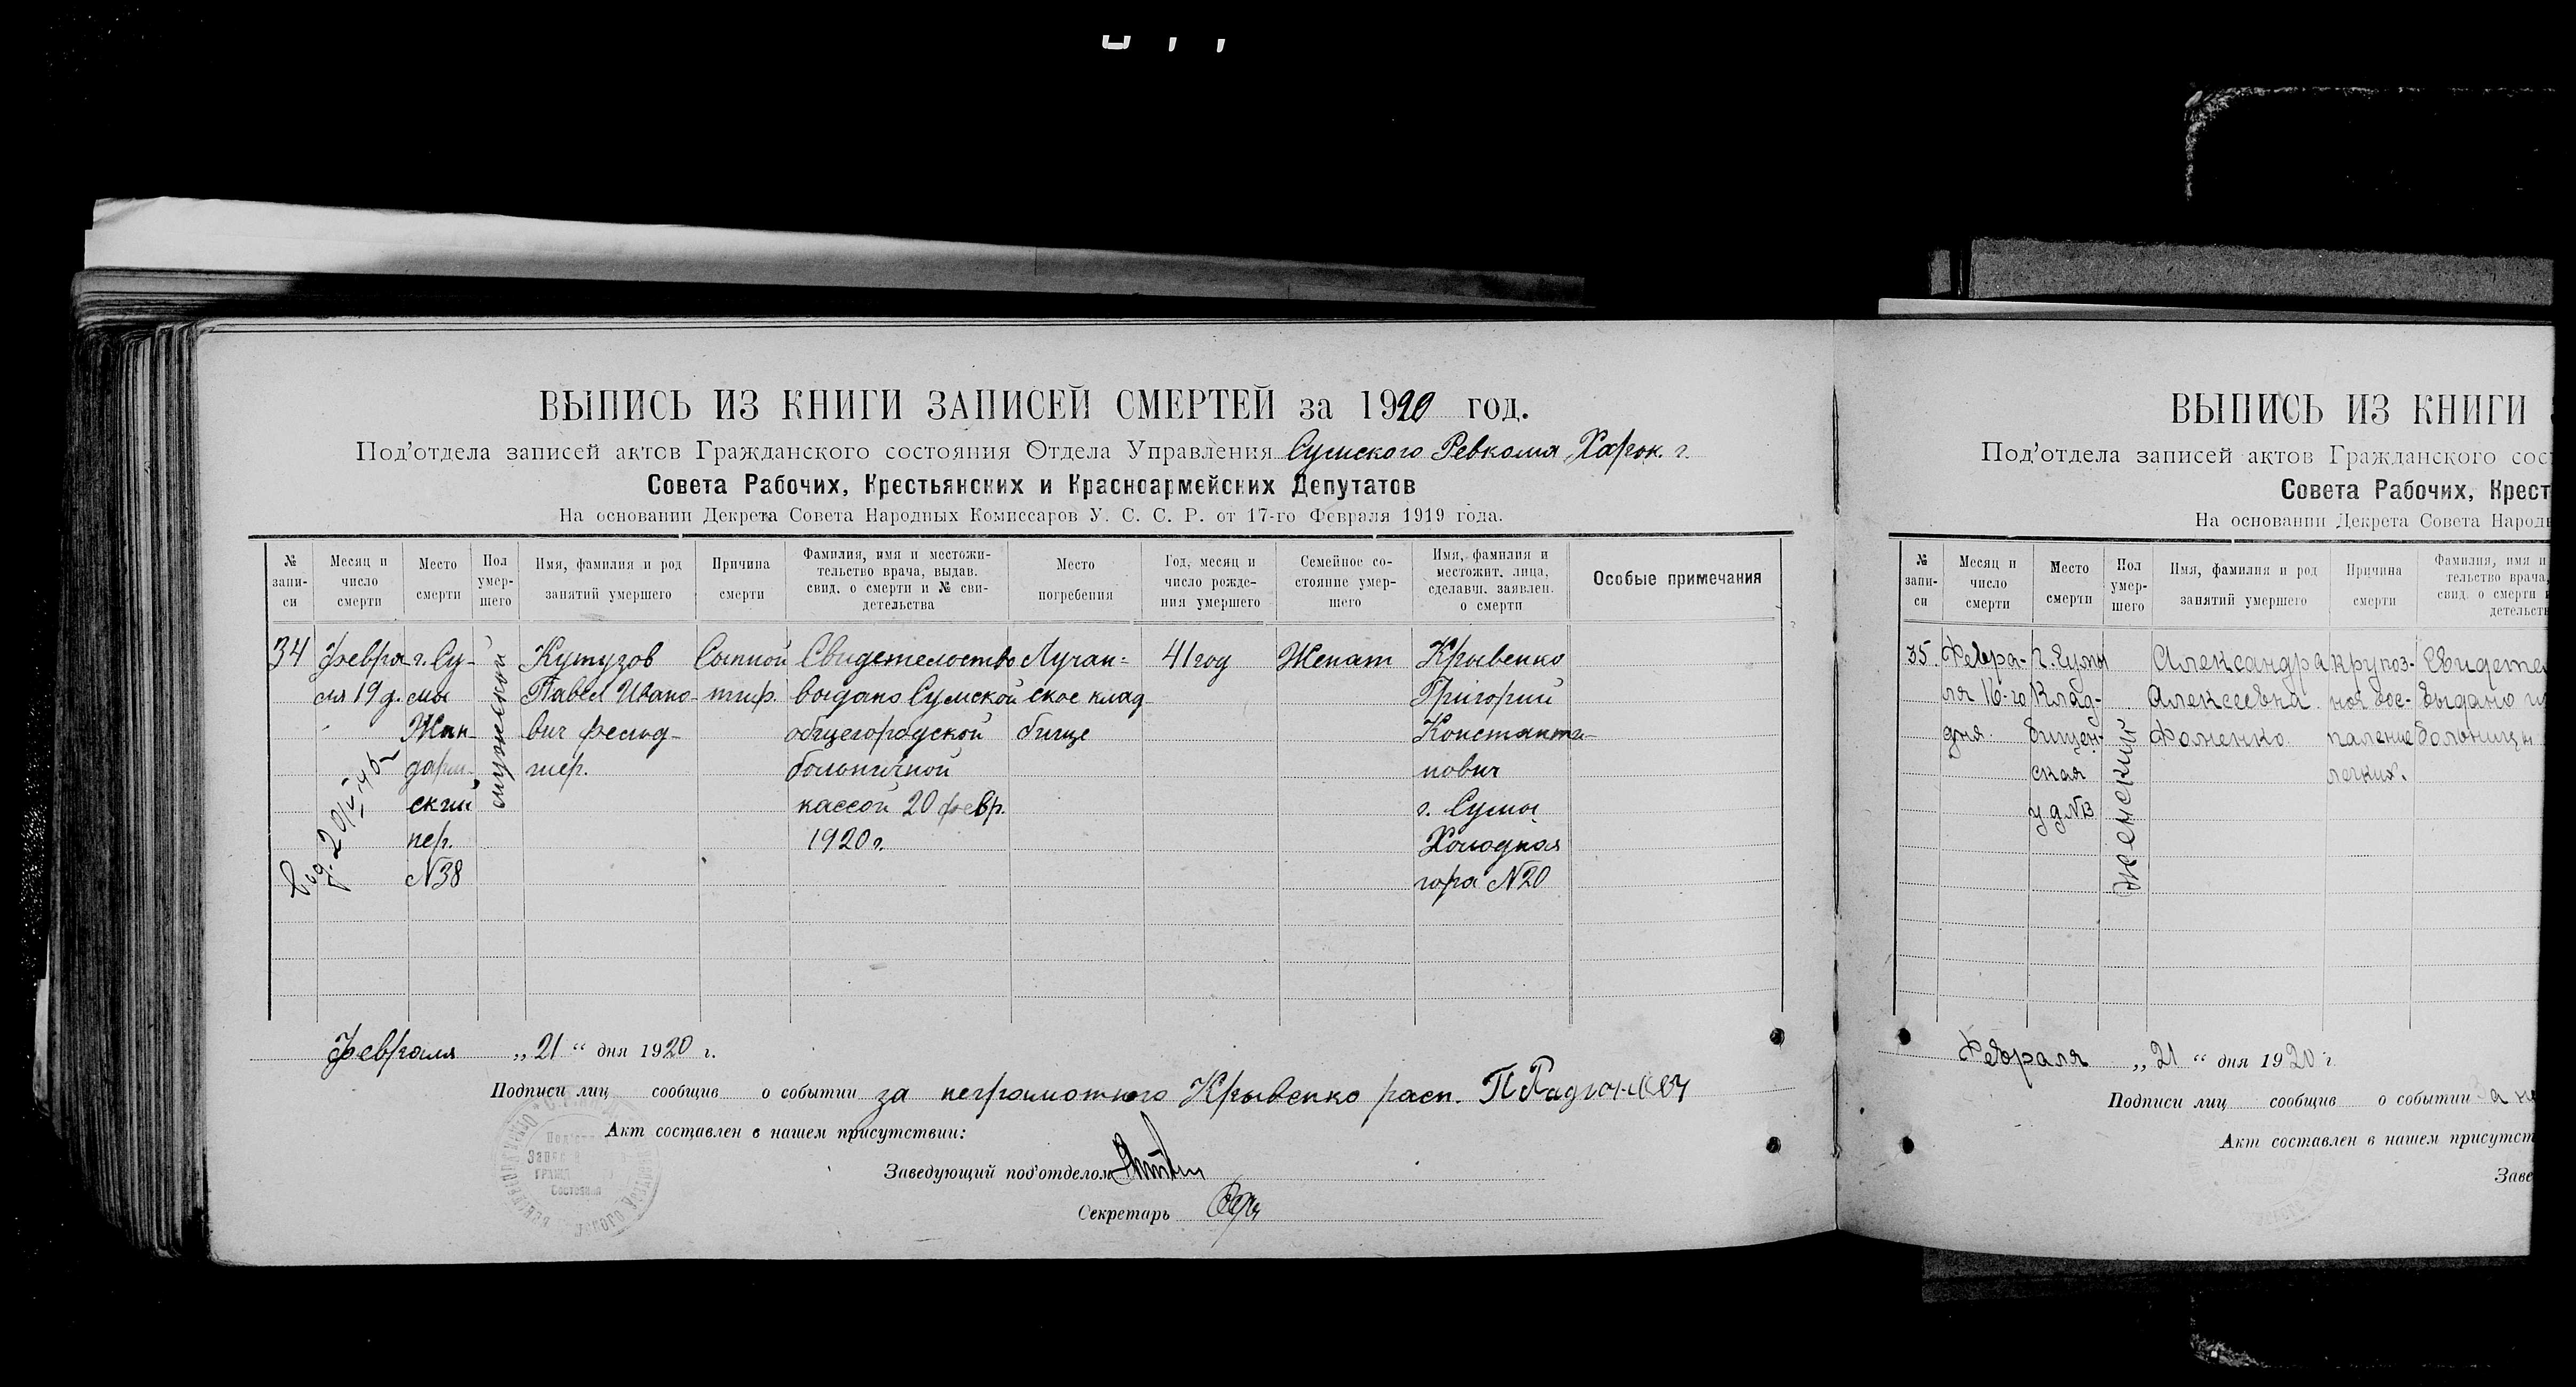 ВЫПИСЬ ИЗ КНИГИ ЗАПИСЕЙ СМЕРТЕЙ за 1920 год.
Под'отдела записей актов Гражданского состояния Отдела Управления Сумского Ревкома Харьк. г.
Совета Рабочих, Крестьянских и Красноармейских Депутатов
На основании Декрета Совета Народных Комиссаров У. С. С. Р. от 17-го Февраля 1919 года.
№ запи-си
Месяц и число смерти
Место смерти
Пол умер-шего
Имя, фамилия и род занятий умершего
Причина смерти
Фамилия, имя и местожи-тельство врача, выдав. свид. о смерти и № сви-детельства
Место погребения
Год, месяц и число рожде-ния умершего
Семейное со-стояние умер-шего
Имя, фамилия и местожит. лица, сделавш. заявлен. о смерти
Особые примечания
34
Февра-
ля 19 д.
г. Су-
мы
Жан-
дарм.
ский
пер.
N38
мужской
Кутузов
Павел Ивано-
вич
Сыпной
тиф.
Свидетельство
выдано Сумской
общегородской
больничной
кассой 20 февр.
1920 г.
Лучан-
ское клад
бище
41 год
Женат
Крывенко
Григорий
Константи-
нович
г. Сумы
Холодная
гора N20
Февраля „21“ дня 1920 г.
Подписи лиц сообщив о событии за неграмотного Крывенко расп.
Акт составлен в нашем присутствии:
Заведующий под'отделом
Секретарь
ВЫПИСЬ ИЗ КНИГИ
Под'отдела записей актов Гражданского сос
Совета Рабочих, Крест
На основании Декрета Совета Народн
№ запи-си
Месяц и число смерти
Место смерти
Пол умер-шего
Имя, фамилия и род занятий умершего
Причина смерти
Фамилия, имя и тельство врача, свид. о смерти и детельст
35
Февра-
ля 16-го
дня.
г. Сумы
Клад-
бищен-
ская
у д N3
женский
Александра
Алексеевна
Фоменко
крупоз-
ное вос-
паление
легких.
Свидете
выдано
больницы
Февраля „21“ дня 1920 г.
Подписи лиц сообщив о событии за не
Акт составлен в нашем присутст
Заве